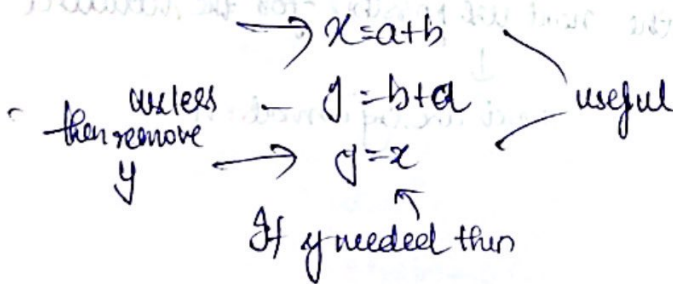 x=a+b
useless – y=b+a useful
then remove
y → y=x
If y needed then